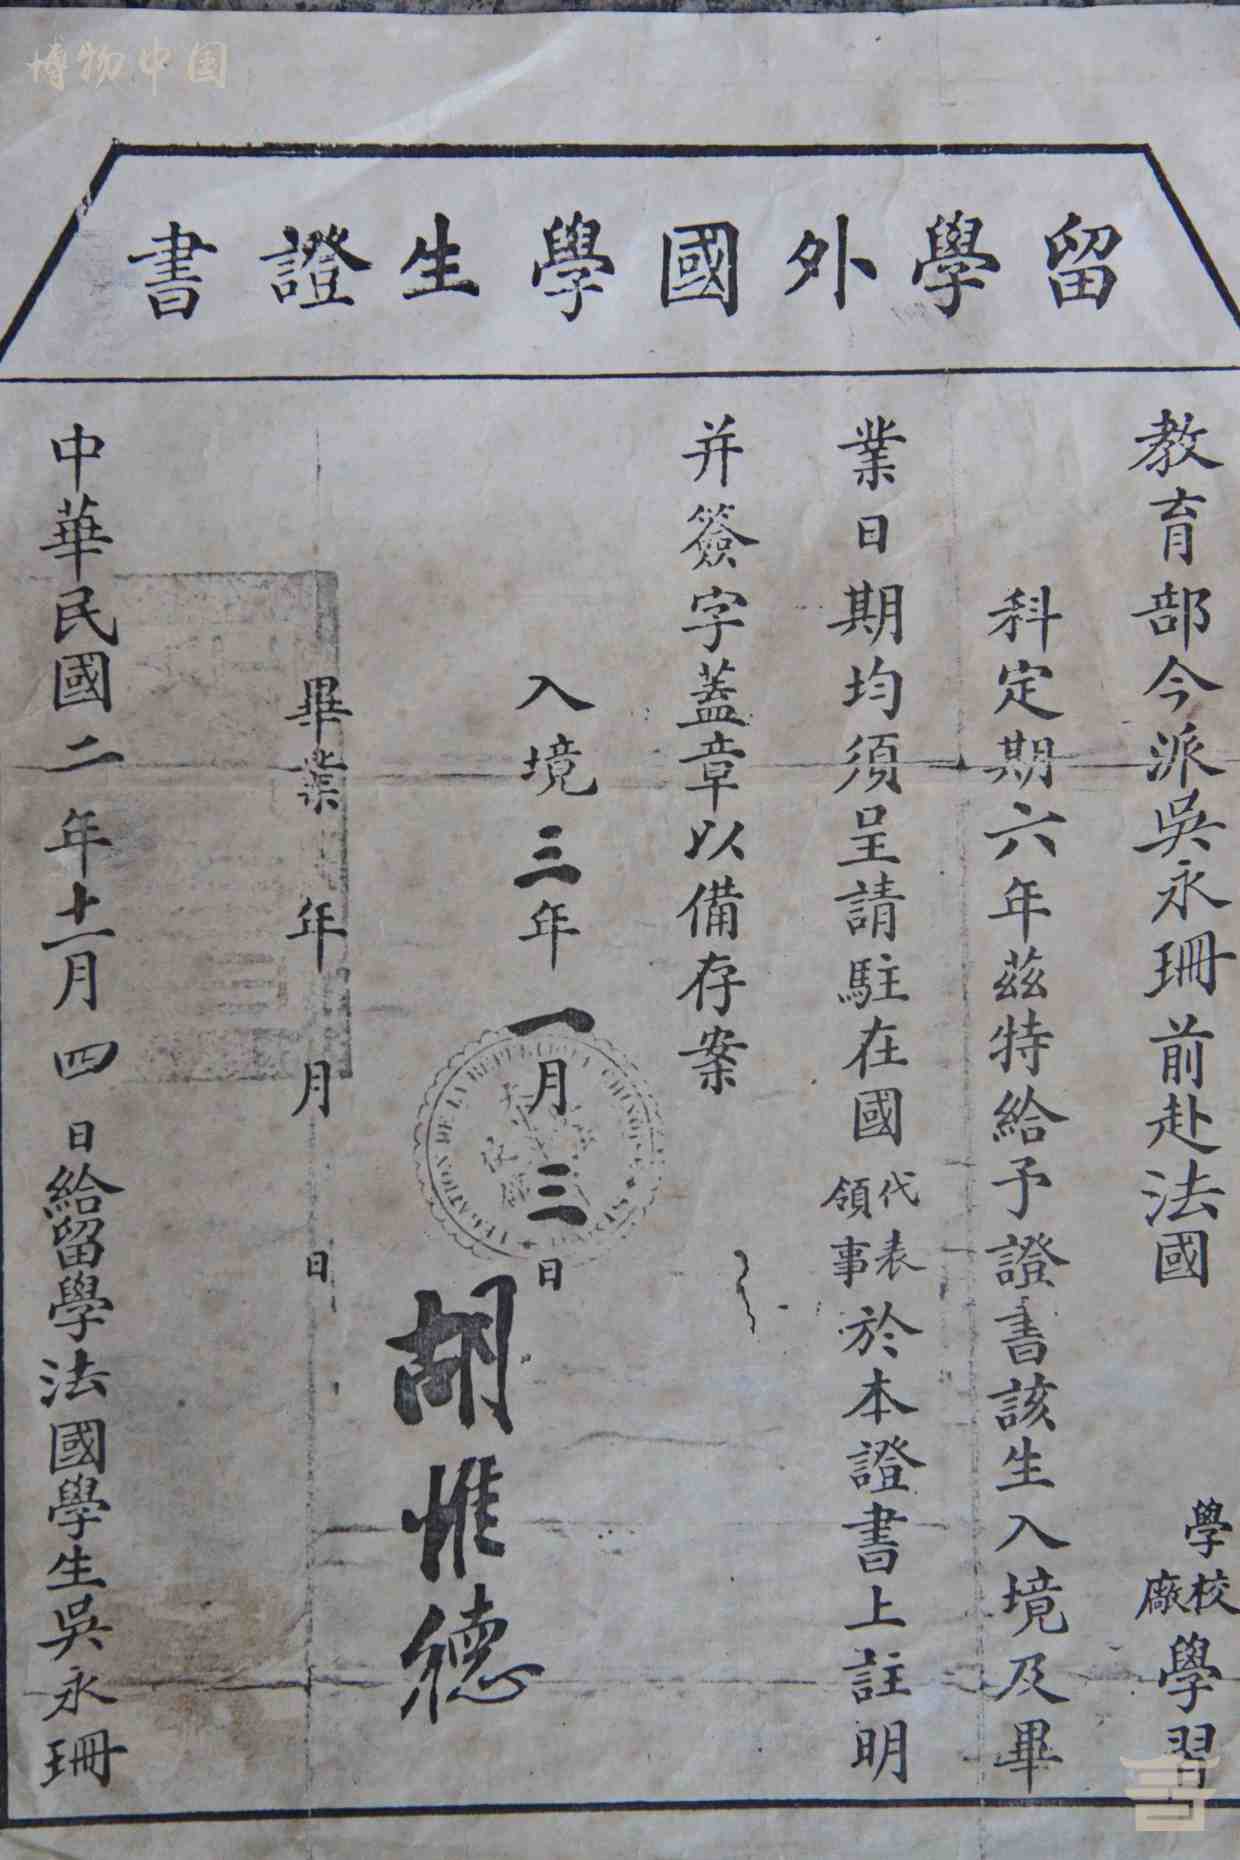 博物中国
留學外國學生證書
教育部今派吳永珊前赴法國
學校
廠
學習
科定期六年茲特給予證書該生入境及畢
業日期均須呈請駐在國
代表
領事
於本證書上註明
并簽字蓋章以備存案
入境三年一月三日
胡惟德
畢業 年 月 日
中華民國二年十二月四日給留學法國學生吳永珊
LEGATION DE LA REPUBLIQUE CHINOISE